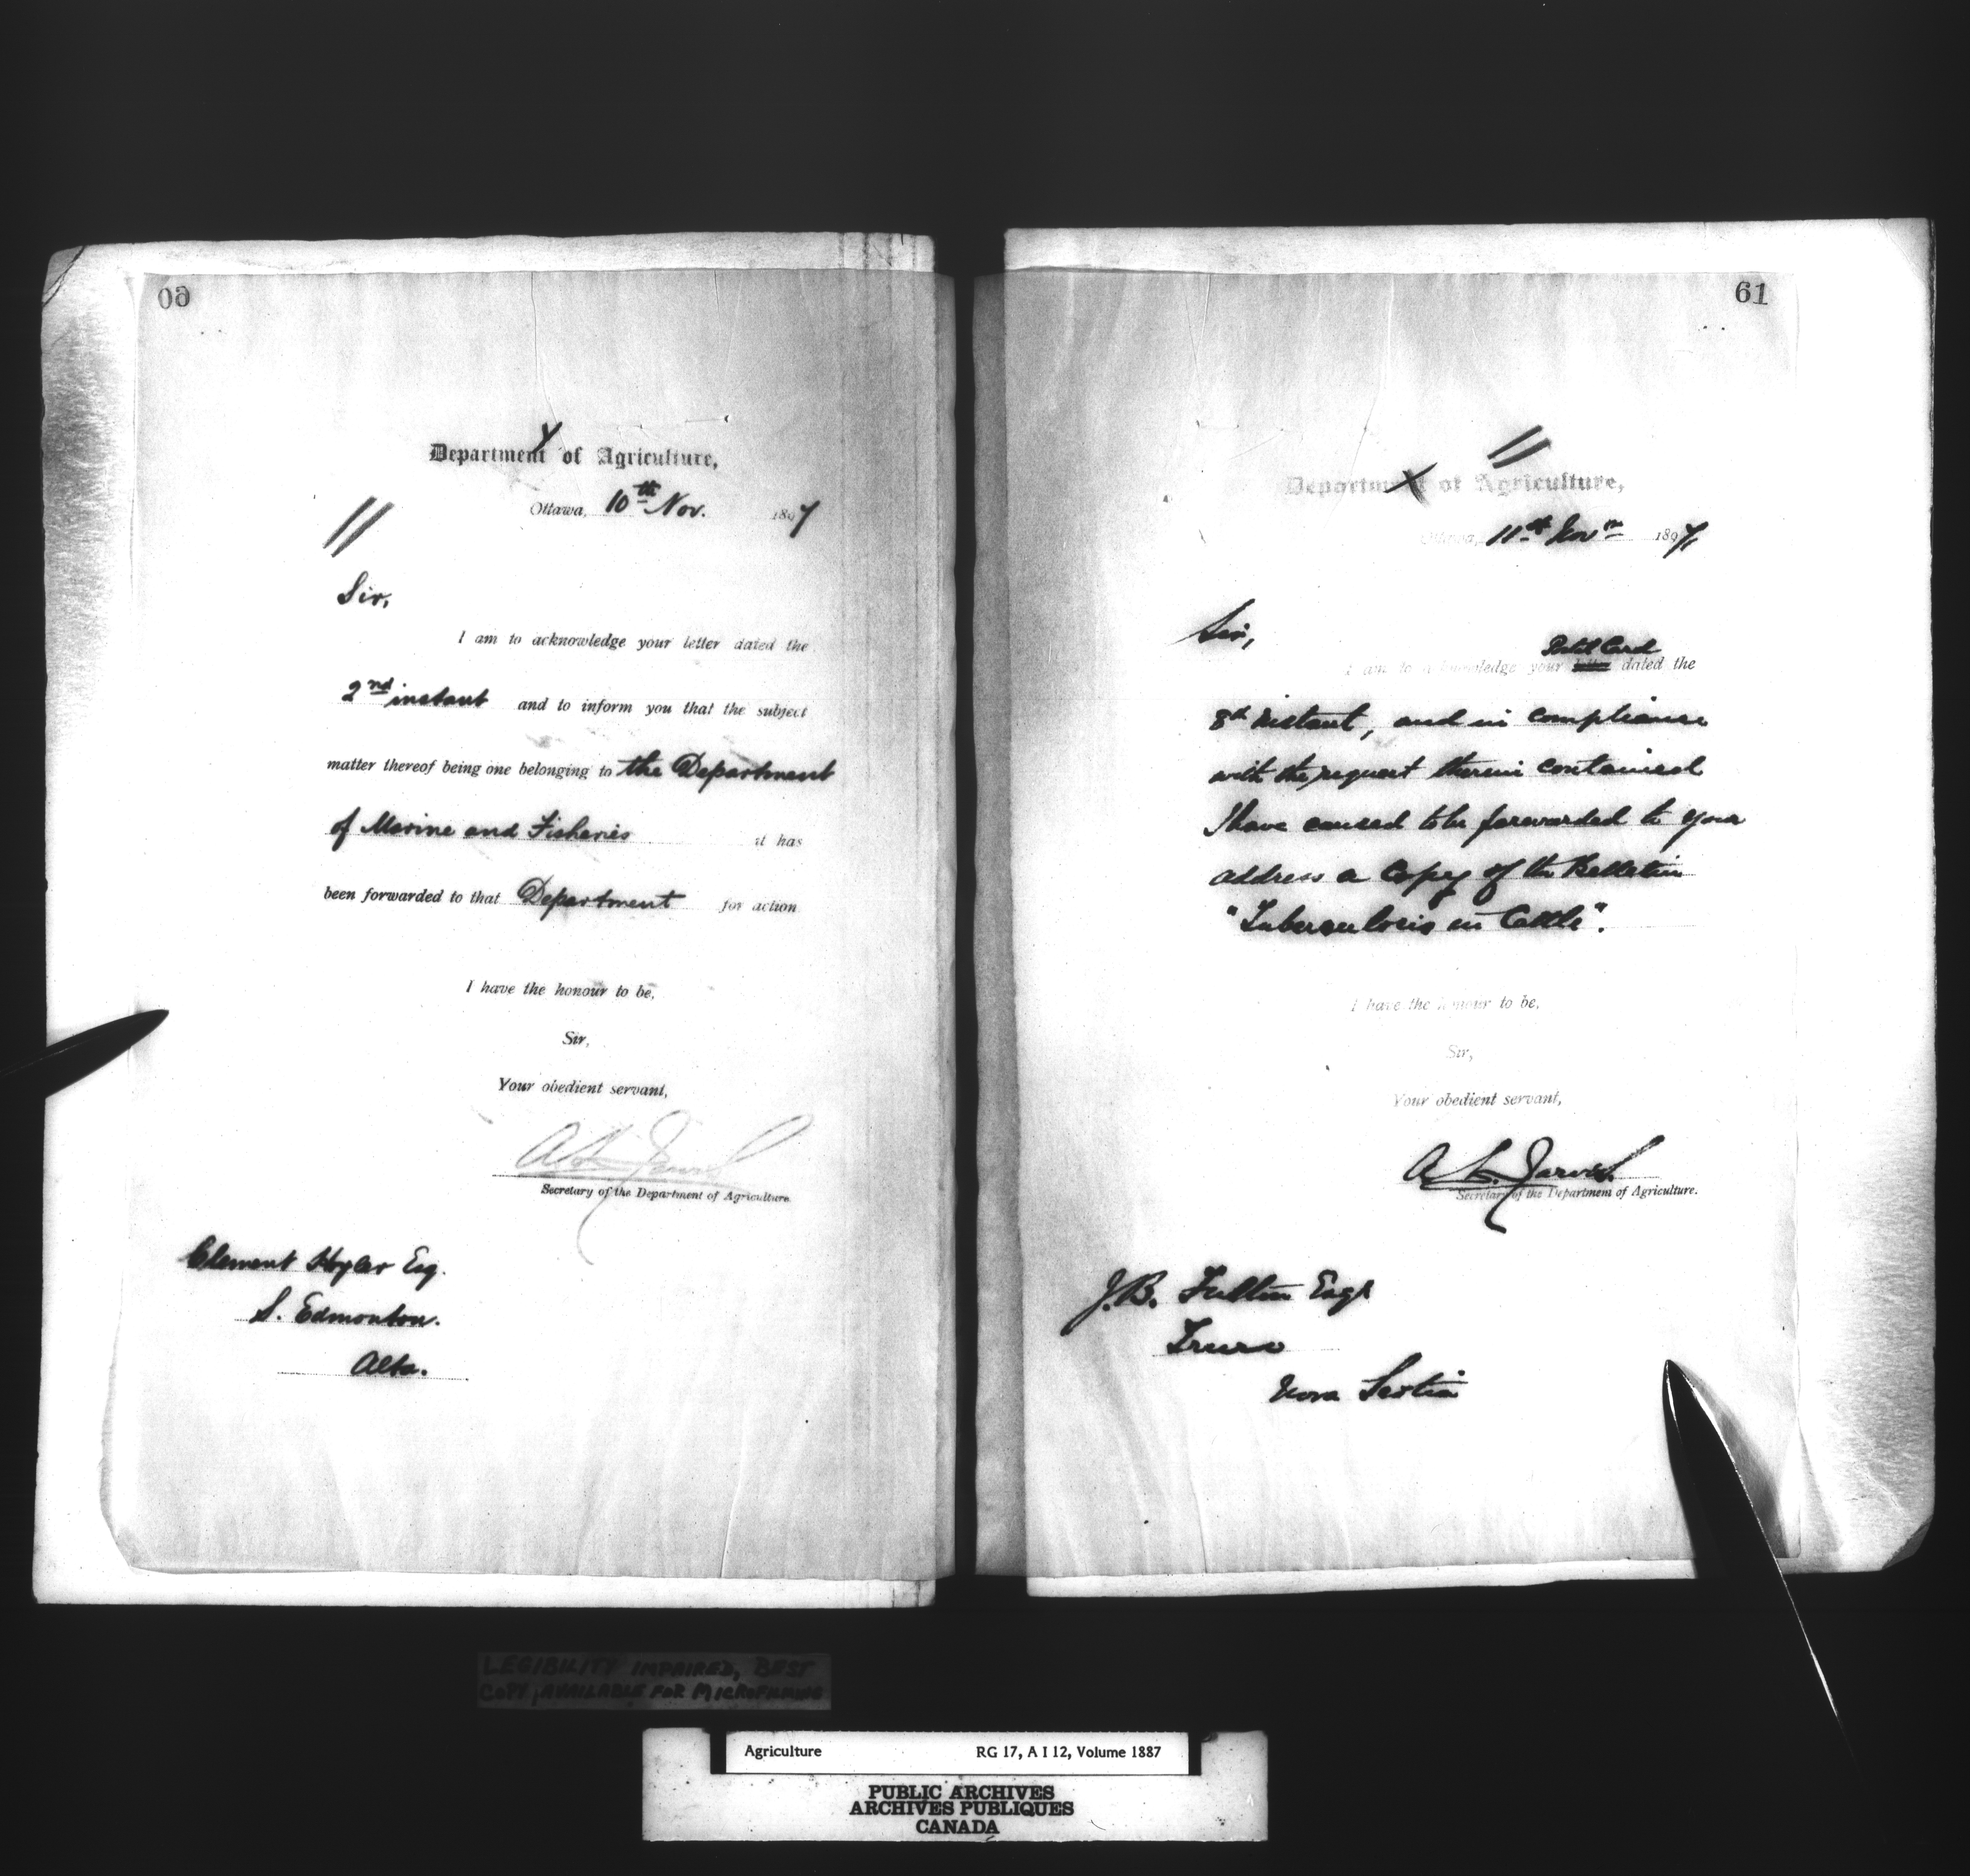 60
Department of Agriculture,
Ottawa, 10th Nov. 1897
Sir,
I am to acknowledge your letter dated the
2nd instant and to inform you that the subject
matter thereof being one belonging to the Department
of Marine and Fisheries it has
been forwarded to that Department for action
I have the honour to be,
Sir,
Your obedient servant,
Secretary of the Department of Agriculture.
Clement Hoyler Esq.
S. Edmonton.
Alta.
61
Department of Agriculture,
Ottawa, 11th Novr 1897,
Sir,
Postal Card
I am to acknowledge your letter dated the
8th instant, and in compliance
with the request therein contained
I have caused to be forwarded to your
address a Copy of the Bulletin
"Tuberculosis in Cattle".
I have the honour to be,
Sir,
Your obedient servant,
A. L. Jarvis.
Secretary of the Department of Agriculture.
J.B. Fulton Esqr
Truro
Nova Scotia
LEGIBILITY IMPAIRED, BEST
COPY, AVAILABLE FOR MICROFILMING
Agriculture RG 17, A I 12, Volume 1887
PUBLIC ARCHIVES
ARCHIVES PUBLIQUES
CANADA